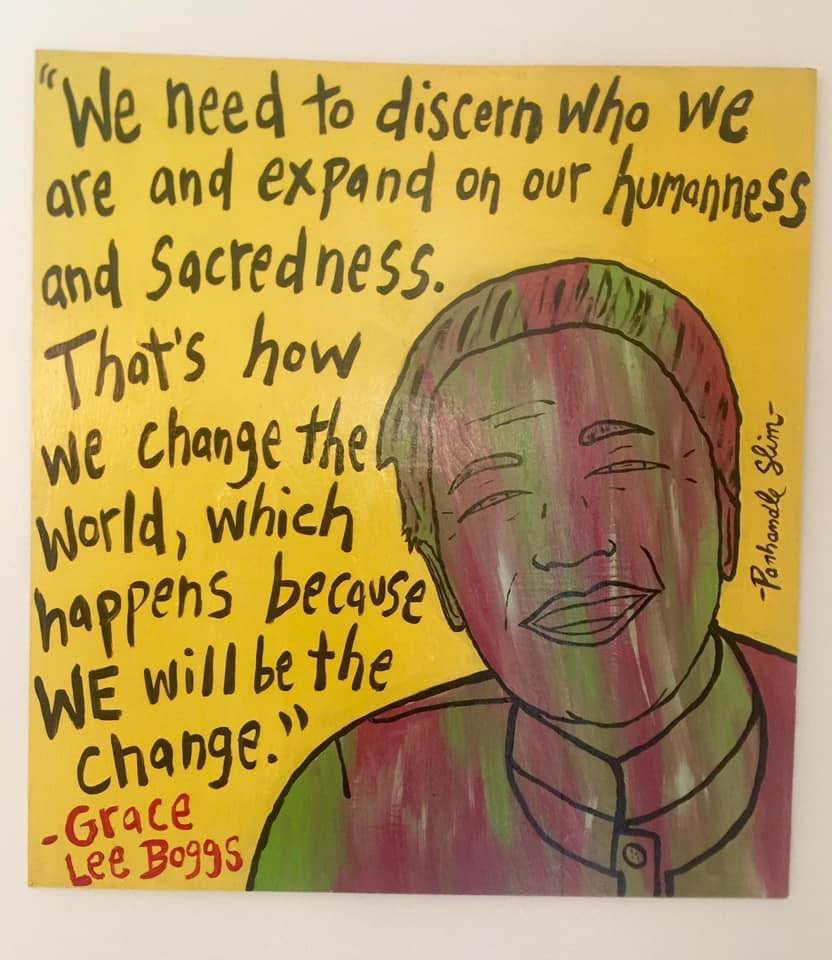 "We need to discern who we
are and expand on our humanness
and sacredness.
That's how
we change the
World, which
happens because
WE will be the
change."
-Grace
Lee Boggs
-Panhandle Slim-